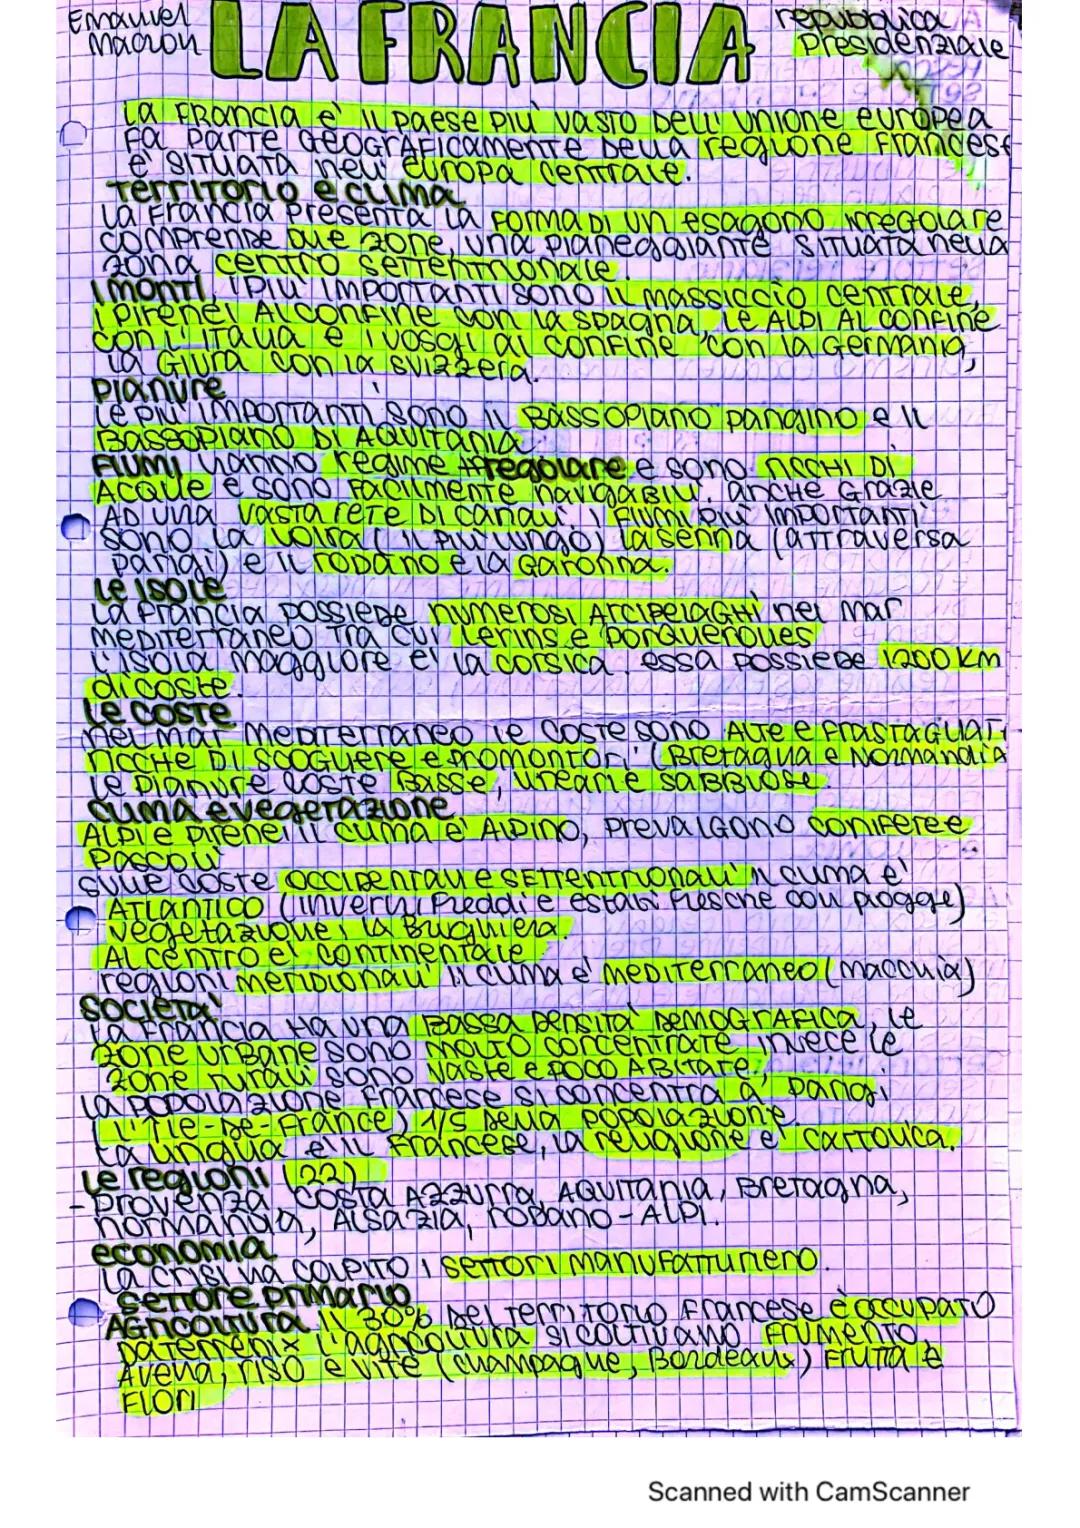 Emanuel
Macron
LA FRANCIA
repubblica
Presidenziale
La Francia è il paese più vasto dell'Unione europea
fa parte geograficamente della regione Francese
e' situata nell'europa centrale.
Territorio e clima
La Francia presenta la forma di un esagono irregolare
comprende due zone, una pianeggiante situata nella
zona centro settentrionale.
I monti, i più importanti sono il massiccio centrale,
i pirenei al confine con la spagna, le Alpi al confine
con l'italia e i vosgi al confine con la Germania,
la Giura con la svizzera.
Pianure
Le più importanti sono il Bassopiano parigino e il
Bassopiano di Aquitania
Fiumi hanno regime regolare e sono ricchi di
acque e sono facilmente navigabili. anche grazie
ad una vasta rete di canali. i fiumi più importanti
sono la Loira (il più lungo) la senna (attraversa
parigi) e il rodano e la Garonna.
Le isole
La Francia possiede numerosi arcipelaghi nel mar
mediterraneo tra cui Lerins e porquerolles
L'isola maggiore e' la corsica. essa possiede 1200 km
di coste.
Le coste
nel mar mediterraneo le coste sono alte e frastagliati
ricche di scogliere e promontori (Bretagna e Normandia
Le pianure coste basse, lineari e sabbiose.
Clima e vegetazione
Alpi e pirenei il clima e' alpino, prevalgono conifere e
pascoli
sulle coste occidentali e settentrionali il clima e'
atlantico (inverni freddi e estati fresche con piogge)
vegetazione, la Brughiera.
Al centro e' continentale
regioni meridionali il clima e' mediterraneo (macchia)
Societa'
La Francia ha una Bassa densita' demografica, le
zone urbane sono molto concentrate invece le
zone rurali sono vaste e poco abitate,
La popolazione francese si concentra a parigi
(L'île-de-france) 1/5 della popolazione.
La lingua e' il francese, la religione e' cattolica.
Le regioni (22)
- provenza, costa azzurra, Aquitania, Bretagna,
normandia, Alsazia, rodano-Alpi.
economia
La crisi ha colpito i settori manufatturiero.
settore primario
Agricoltura il 30% del territorio francese è occupato
l'agricoltura si coltivano frumento,
avena, riso e vite (champagne, Bordeaux) frutta e
fiori
Scanned with CamScanner